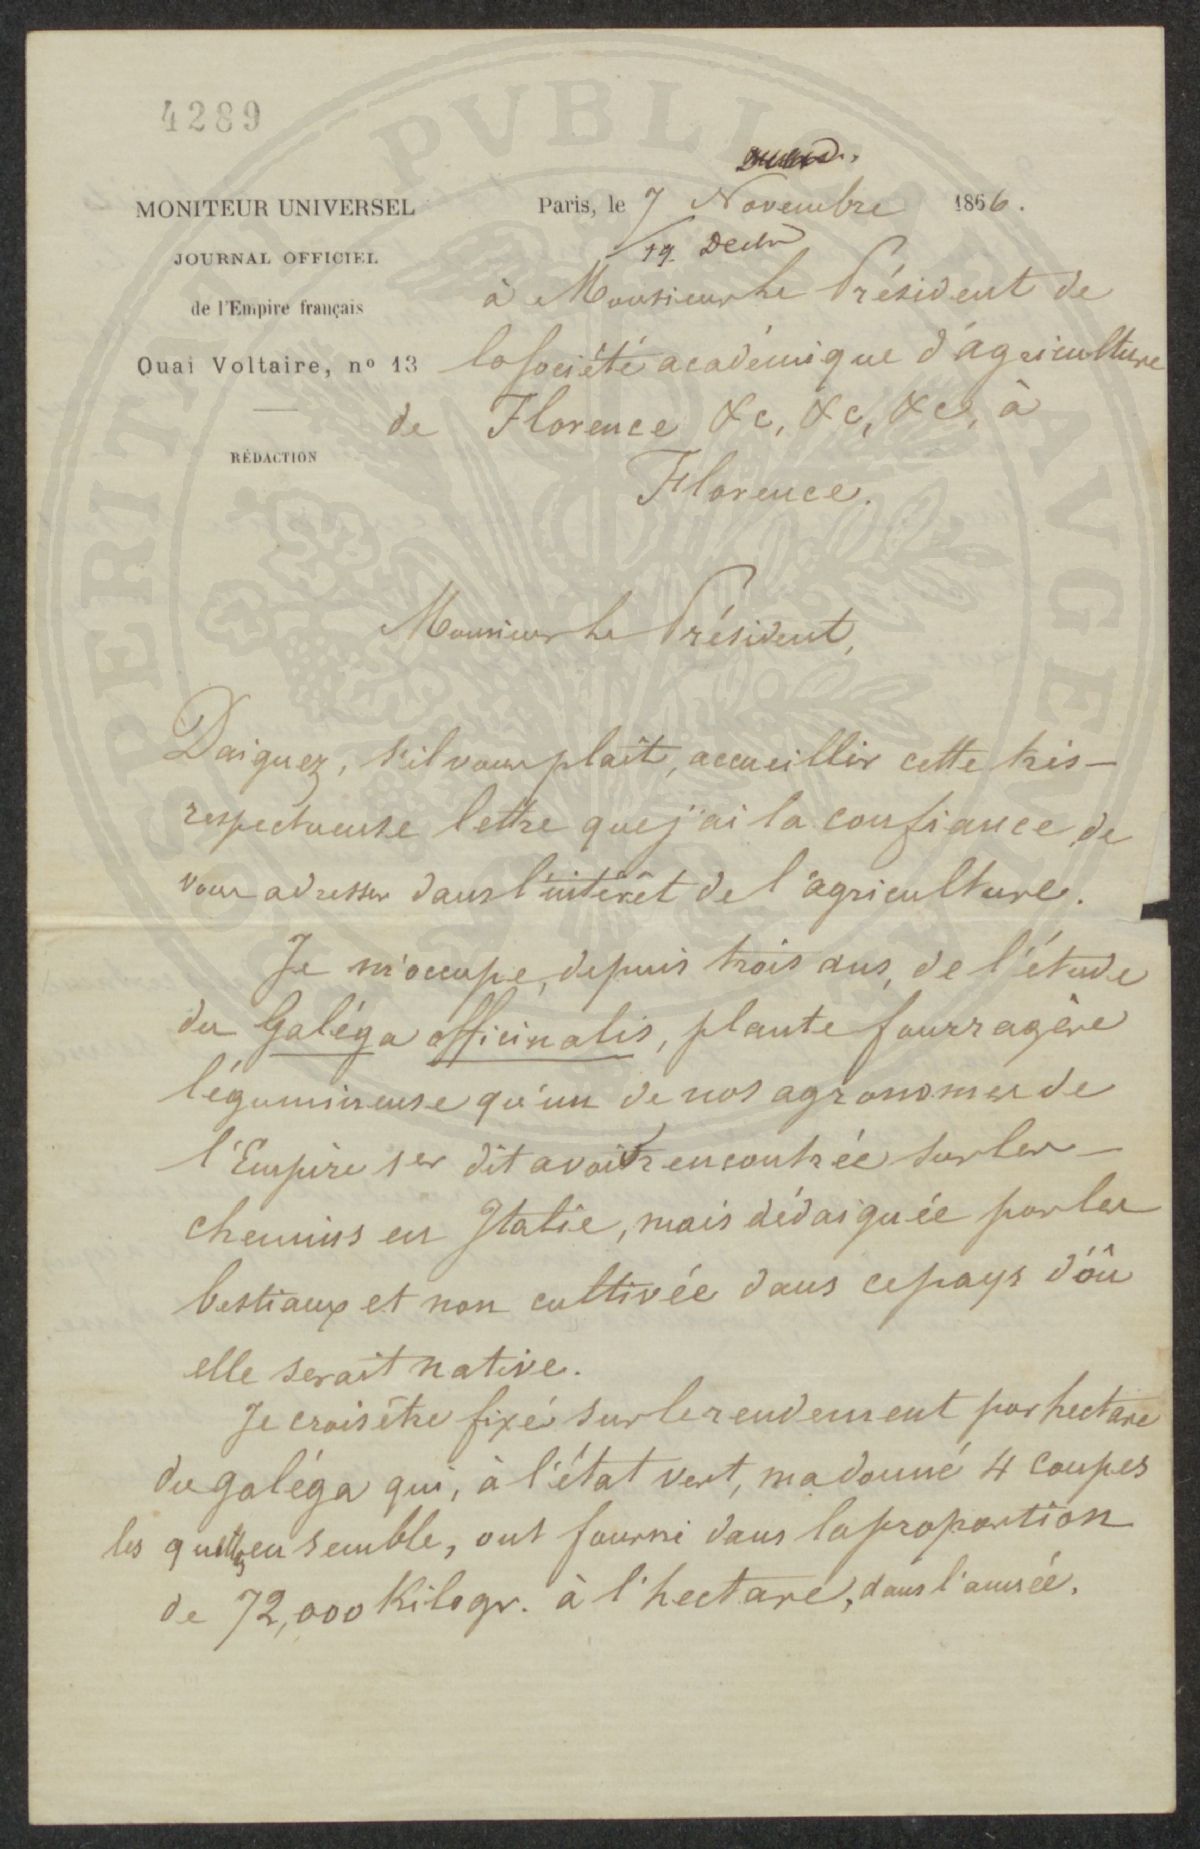 4289
MONITEUR UNIVERSEL
JOURNAL OFFICIEL
de l'Empire français
Quai Voltaire, nº 13
RÉDACTION
Paris, le 7 Novembre 1866.
19 Decbr
à Monsieur Le Président de
la Société académique d'agriculture
de Florence &c, &c, &c, à
Florence.
Monsieur Le Président,
Daignez, s'il vous plaît, accueillir cette très-
respectueuse lettre que j'ai la confiance de
vous adresser dans l'intérêt de l'agriculture.
Je m'occupe, depuis trois ans, de l'étude
du Galéga officinalis, plante fourragère
légumineuse qu'un de nos agronomes de
l'Empire 1er dit avoir rencontrée sur les
chemins en Italie, mais dédaignée par les
bestiaux et non cultivée dans ce pays d'où
elle serait native.
Je crois être fixé sur le rendement par hectare
du galéga qui, à l'état vert, m'a donné 4 coupes
les quelles ensemble, ont fourni dans la proportion
de 72,000 Kilogr. à l'hectare, dans l'année.
PVBLICAE
PROSPERITATI
AVGENDAE